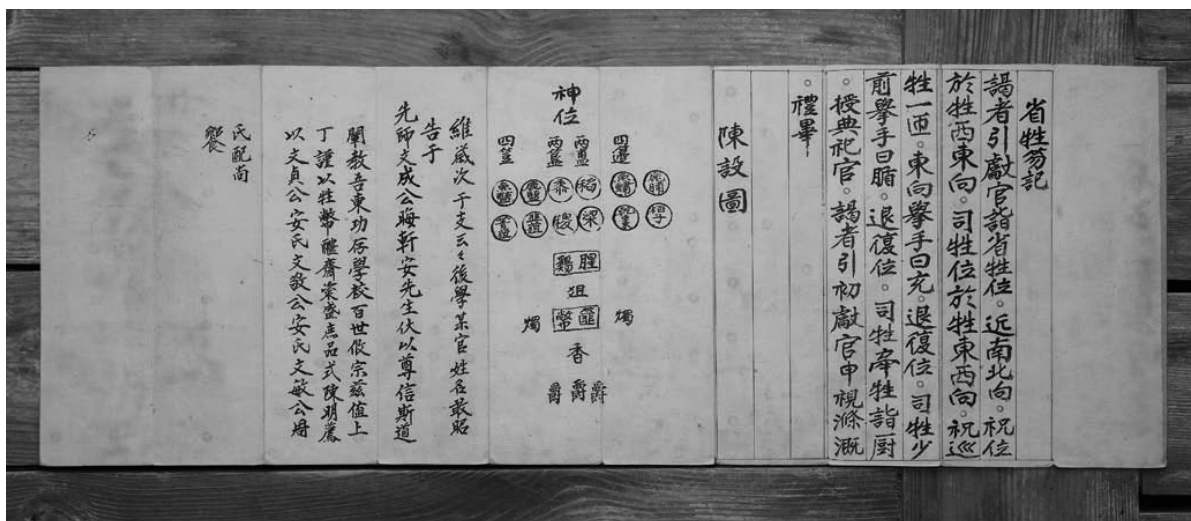 省牲笏記
謁者引獻官詣省牲位。近南北向。祝位
於牲西東向。司牲位於牲東西向。祝巡
牲一匝。東向擧手曰充。退復位。司牲少
前擧手曰腯。退復位。司牲牽牲詣厨
。授典祀官。謁者引初獻官申視滌溉
。禮畢
陳設圖
四籩
兩簠
兩簋
四豆
神位
稻
黍
梁
稷
腥
鷄
俎
篚
幣
燭
燭
香
爵
爵
爵
維歲次干支云々後學某官姓名敢昭
告于
先師文成公晦軒安先生伏以尊信斯道
闡教吾東功存學校百世攸宗玆值上
丁謹以牲幣醴齋粢盛庶品式陳明薦
以文貞公安氏文敬公安氏文敏公周
氏配尚
饗